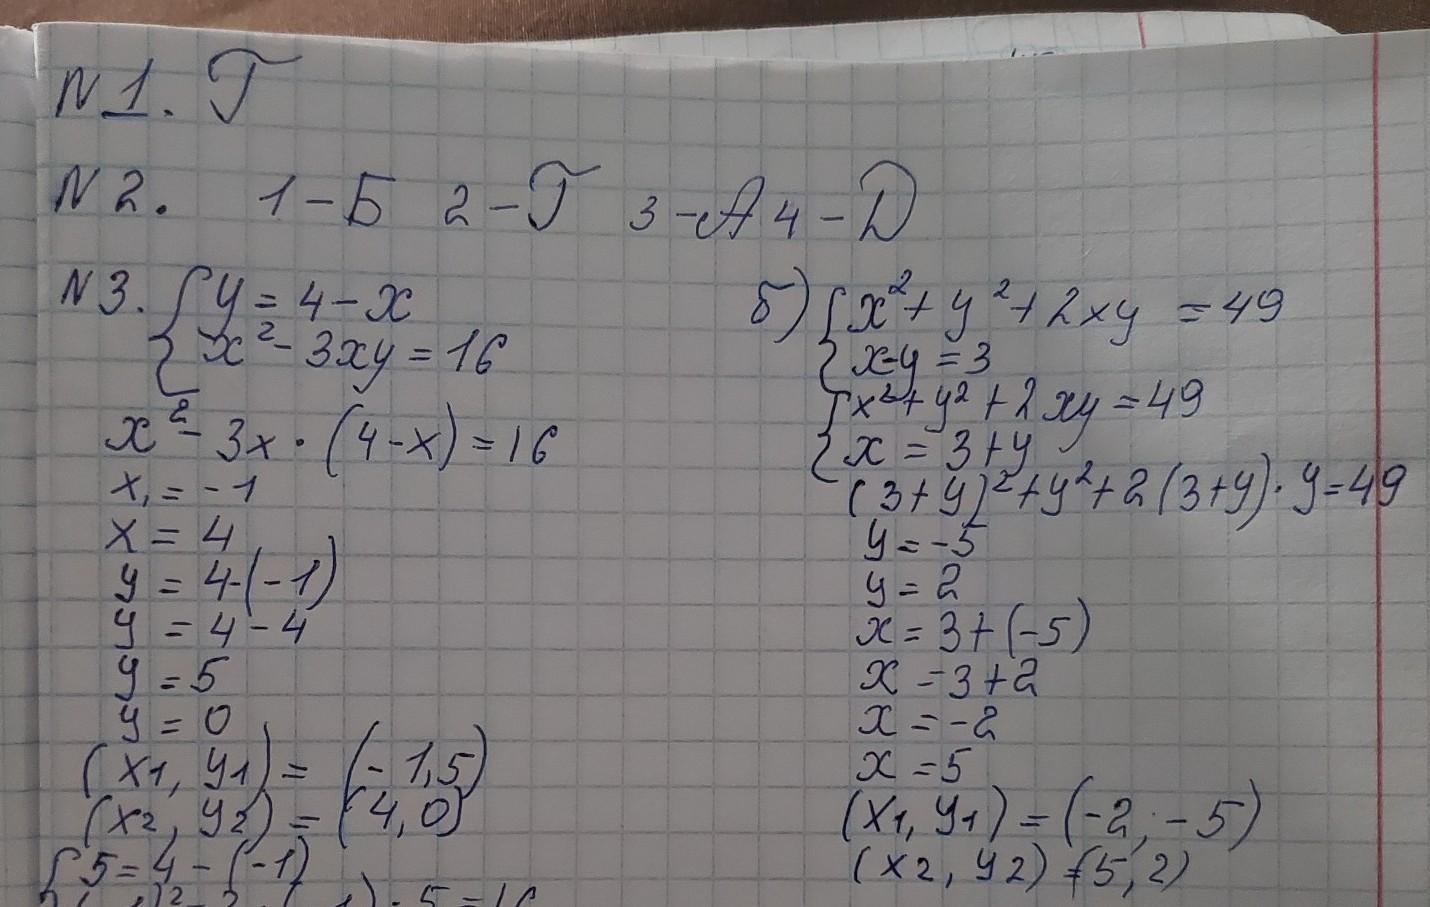 N1. Г
N2. 1-Б 2-Г 3-А 4-D
N3. { y = 4 - x
x² - 3xy = 16
x² - 3x · (4-x) = 16
x₁ = -1
x = 4
y = 4-(-1)
y = 4 - 4
y = 5
y = 0
(x1, y1) = (-1,5)
(x2, y2) = (4,0)
{ 5 = 4 - (-1)
б) { x² + y² + 2xy = 49
x-y = 3
{ x² + y² + 2xy = 49
x = 3+y
(3+y)² + y² + 2(3+y) · y = 49
y = -5
y = 2
x = 3+(-5)
x = 3+2
x = -2
x = 5
(x1, y1) = (-2, -5)
(x2, y2) = (5, 2)